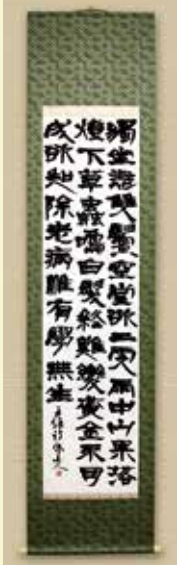 獨坐悲雙鬢空堂欲二更雨中山果落
燈下草蟲鳴白髮終難變黃金不可
成欲知除老病惟有學無生
王維詩